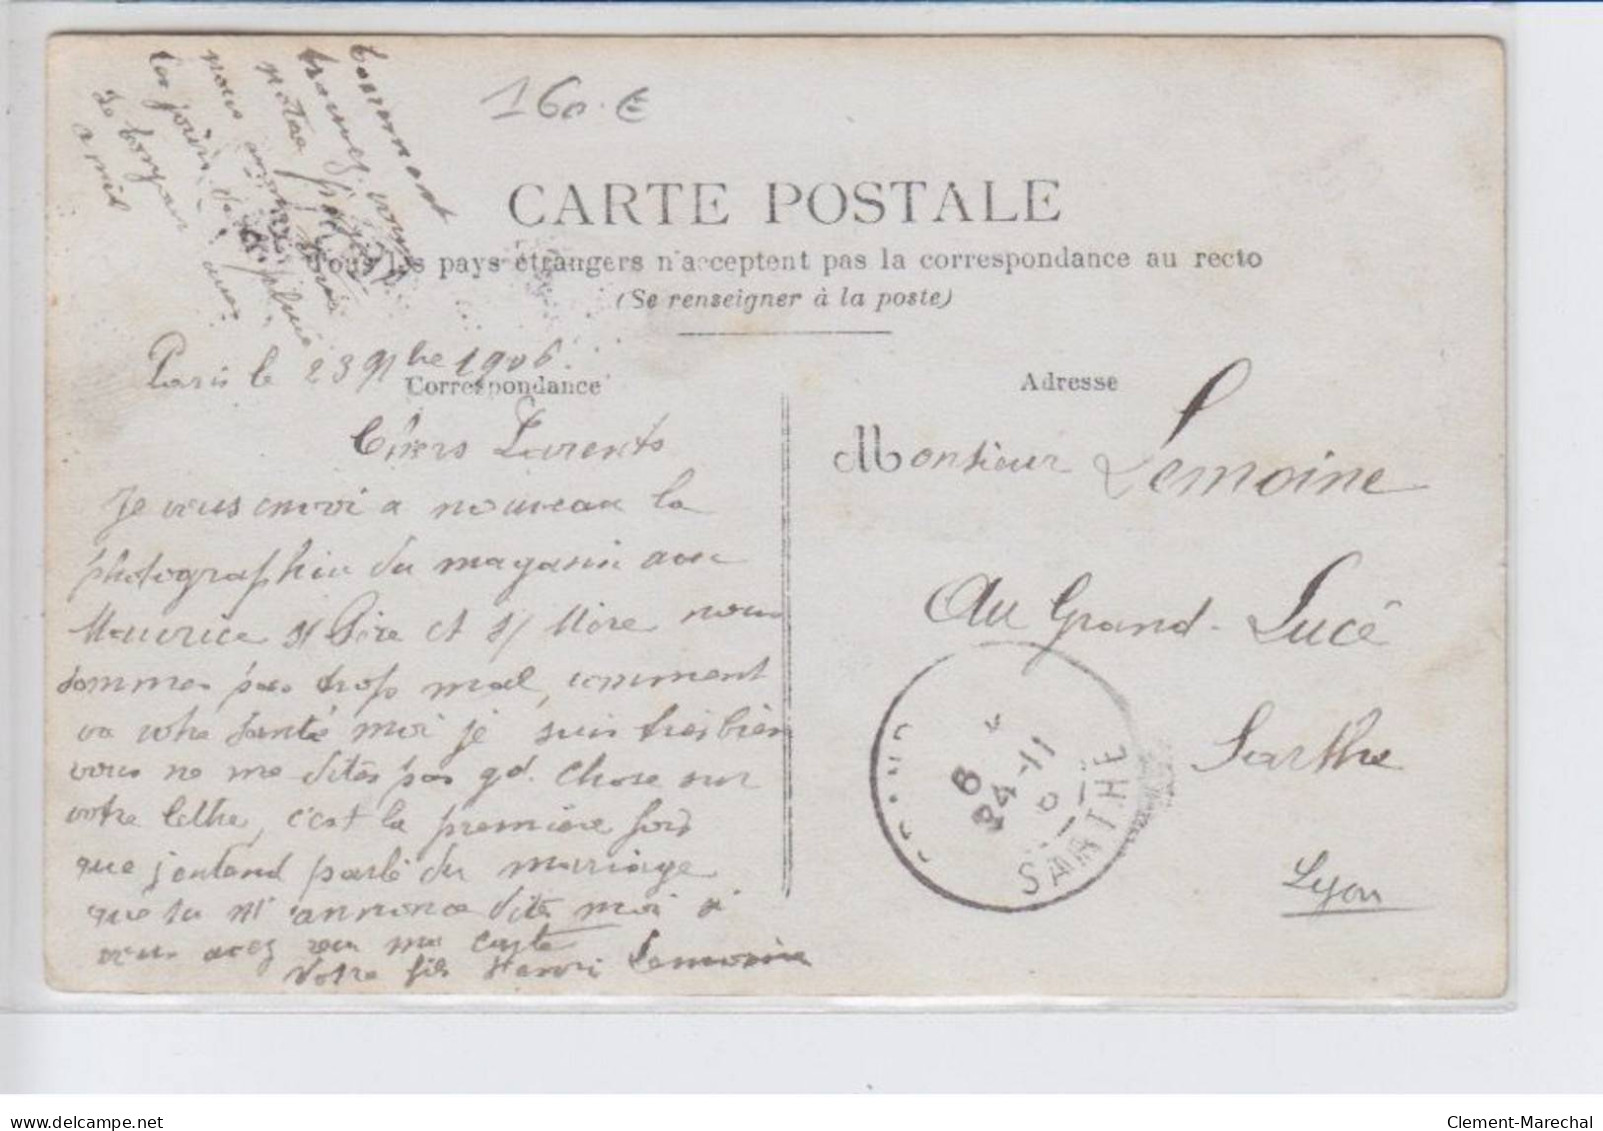 Comment
trouvez vous
notre photo
nous avons
la pluie
160 €
CARTE POSTALE
Tous les pays étrangers n'acceptent pas la correspondance au recto
(Se renseigner à la poste)
Paris le 23 9bre 1906.
Correspondance
Chers Parents
Je vous envoi a nouveau la
photographie du magasin avec
Maurice s/ Père et s/ Mère nous
sommes pas trops mal, comment
va votre santé moi je suis très bien
vous ne me dites pas gd. chose sur
votre lettre, c'est la première fois
que j'entend parlé du marriage
que tu m'annonce dites moi si
vous avez reçu ma carte
Votre fils Henri Lemoine
Adresse
Monsieur Lemoine
Au Grand-Lucé
Sarthe
24-11
SARTHE
Lyon
delcampe.net
Clement-Marechal